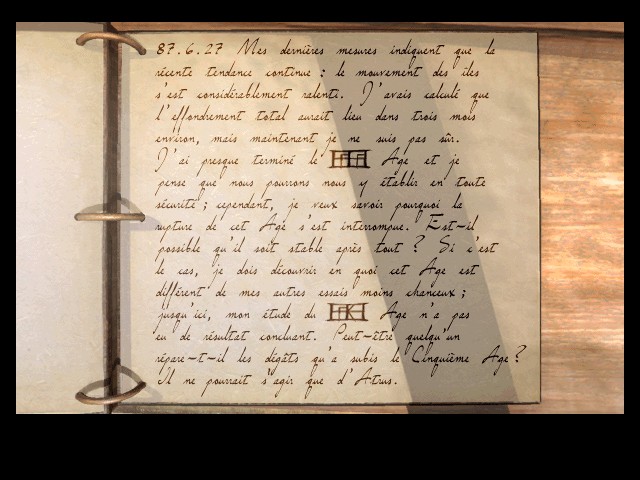 87.6.27 Mes dernières mesures indiquent que la
récente tendance continue : le mouvement des îles
s'est considérablement ralenti. J'avais calculé que
l'effondrement total aurait lieu dans trois mois
environ, mais maintenant je ne suis pas sûr.
J'ai presque terminé le Age et je
pense que nous pourrons nous y établir en toute
sécurité ; cependant, je veux savoir pourquoi la
rupture de cet Age s'est interrompue. Est-il
possible qu'il soit stable après tout ? Si c'est
le cas, je dois découvrir en quoi cet Age est
différent de mes autres essais moins chanceux ;
jusqu'ici, mon étude du Age n'a pas
eu de résultat concluant. Peut-être quelqu'un
répare-t-il les dégâts qu'a subis le Cinquième Age ?
Il ne pourrait s'agir que d'Atrus.